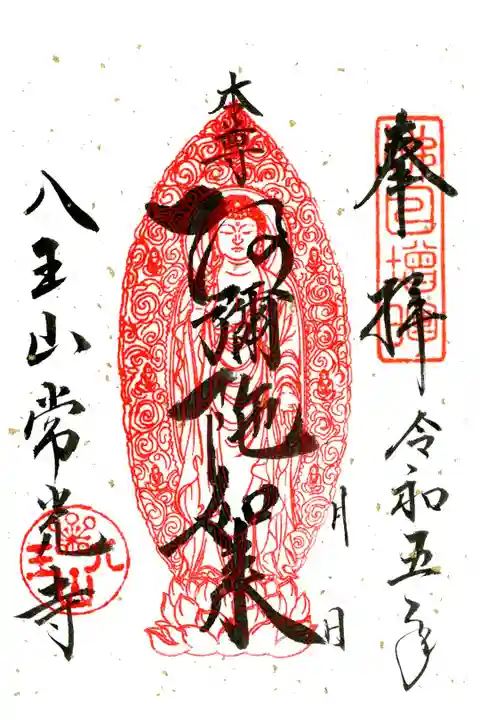 奉拝
令和五年
月 日
本尊
阿彌陀如来
八王山常光寺